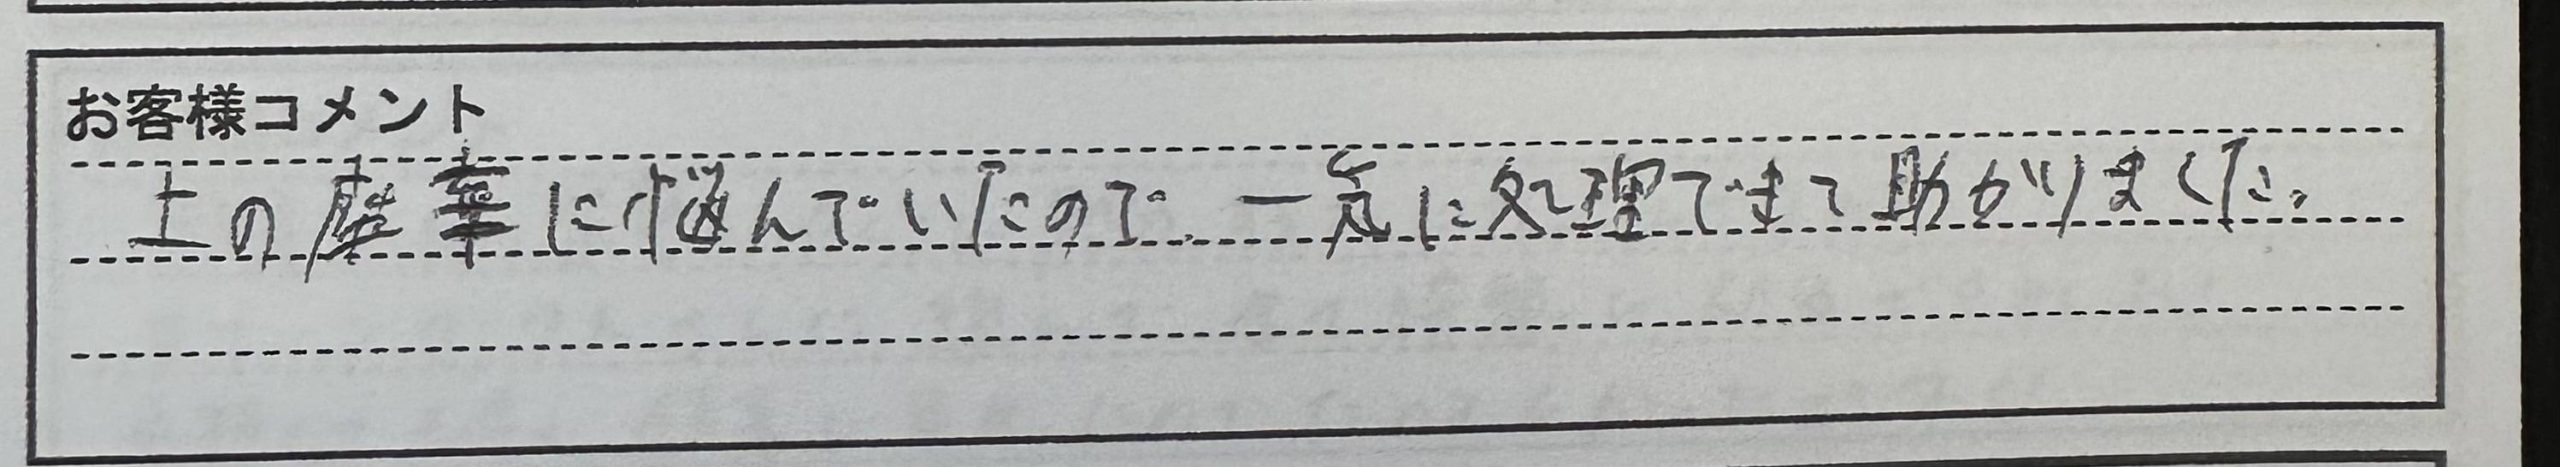 お客様コメント
土の廃棄に悩んでいたので、一気に処理できて助かりました。